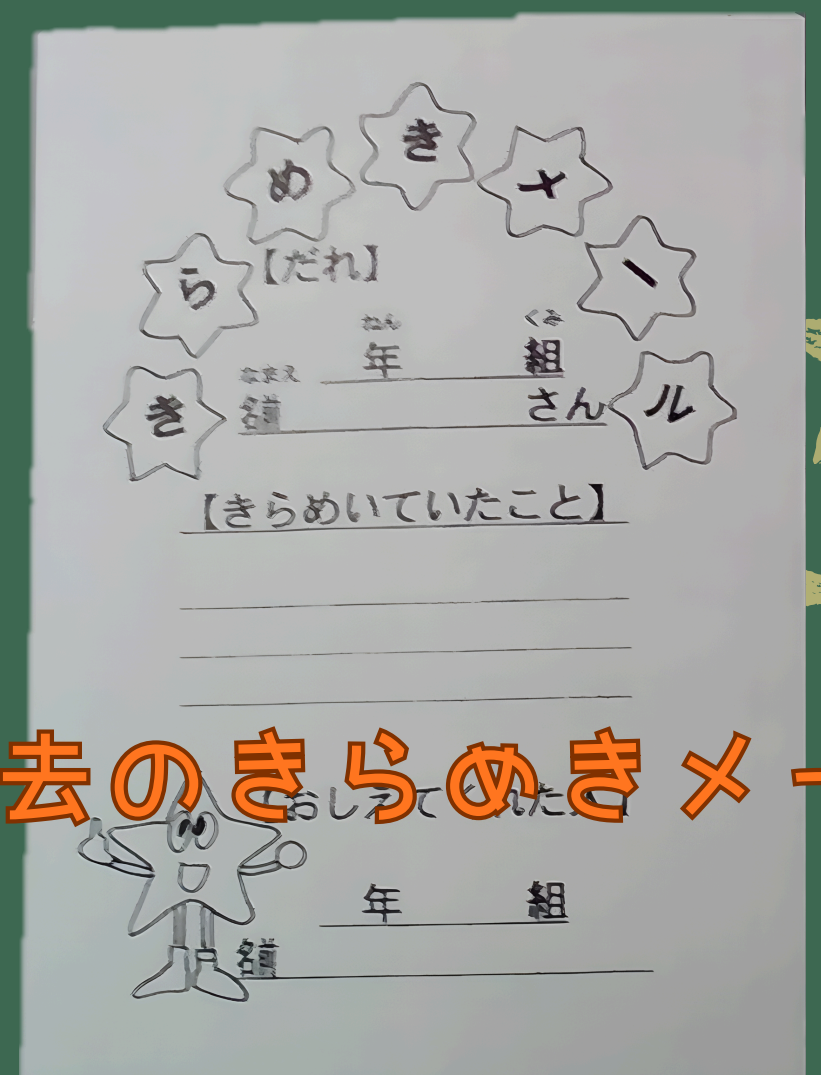 きらめきメール
【だれ】
ねん くみ
年 組
なまえ
名前 さん
【きらめいていたこと】
去のきらめきメー
おしえてくれた人】
年 組
名前